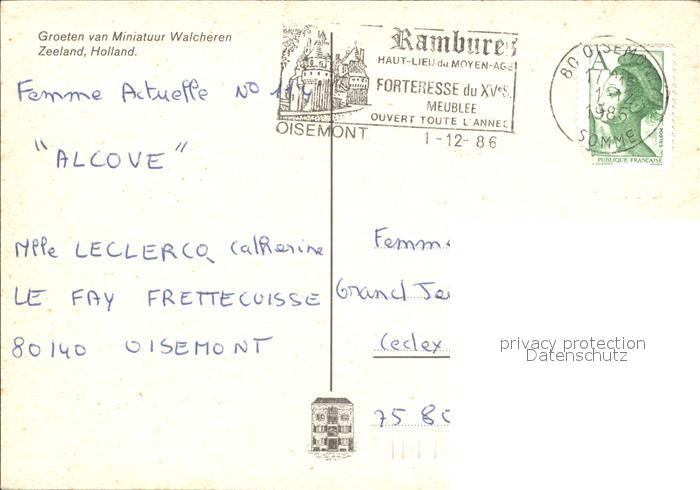 Groeten van Miniatuur Walcheren
Zeeland, Holland.
Rambures
HAUT-LIEU du MOYEN-AGE
FORTERESSE du XVeS.
MEUBLEE
OUVERT TOUTE L'ANNEE
OISEMONT
1-12-86
80 OISEMONT
1986
SOMME
A
POSTES
PUBLIQUE FRANÇAISE
Femme Actuelle No 114
"ALCOVE"
Mlle LECLERCQ Catherine
LE FAY FRETTECUISSE
80140 OISEMONT
Femme
Grand Je
Cedex
75 80
privacy protection
Datenschutz